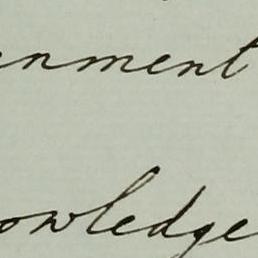 rnment
owledge